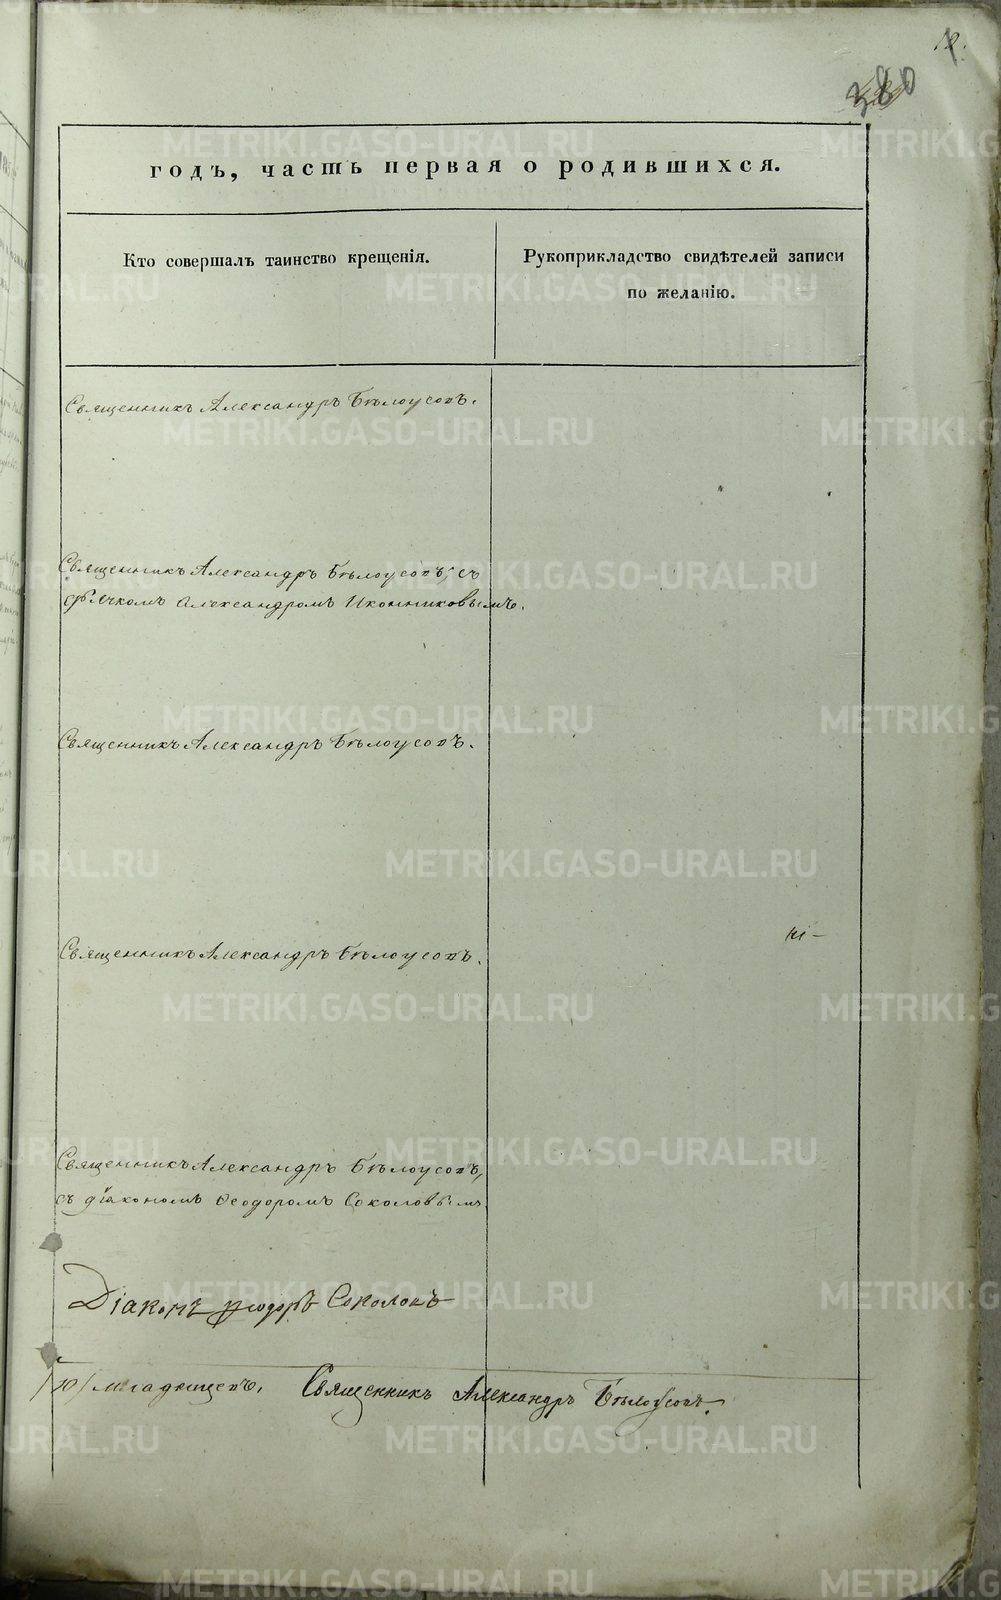 380
годъ, часть первая о родившихся.
Кто совершалъ таинство крещенія.
Рукоприкладство свидѣтелей записи
по желанію.
Священникъ Александръ Бѣлоусовъ.
Священникъ Александръ Бѣлоусовъ, съ
дьячкомъ Александромъ Иконниковымъ.
Священникъ Александръ Бѣлоусовъ.
Священникъ Александръ Бѣлоусовъ.
Священникъ Александръ Бѣлоусовъ,
съ діакономъ Ѳеодоромъ Соколовымъ.
Діаконъ Ѳеодоръ Соколовъ
/10/ младенцевъ. Священникъ Александръ Бѣлоусовъ.
METRIKI.GASO-URAL.RU